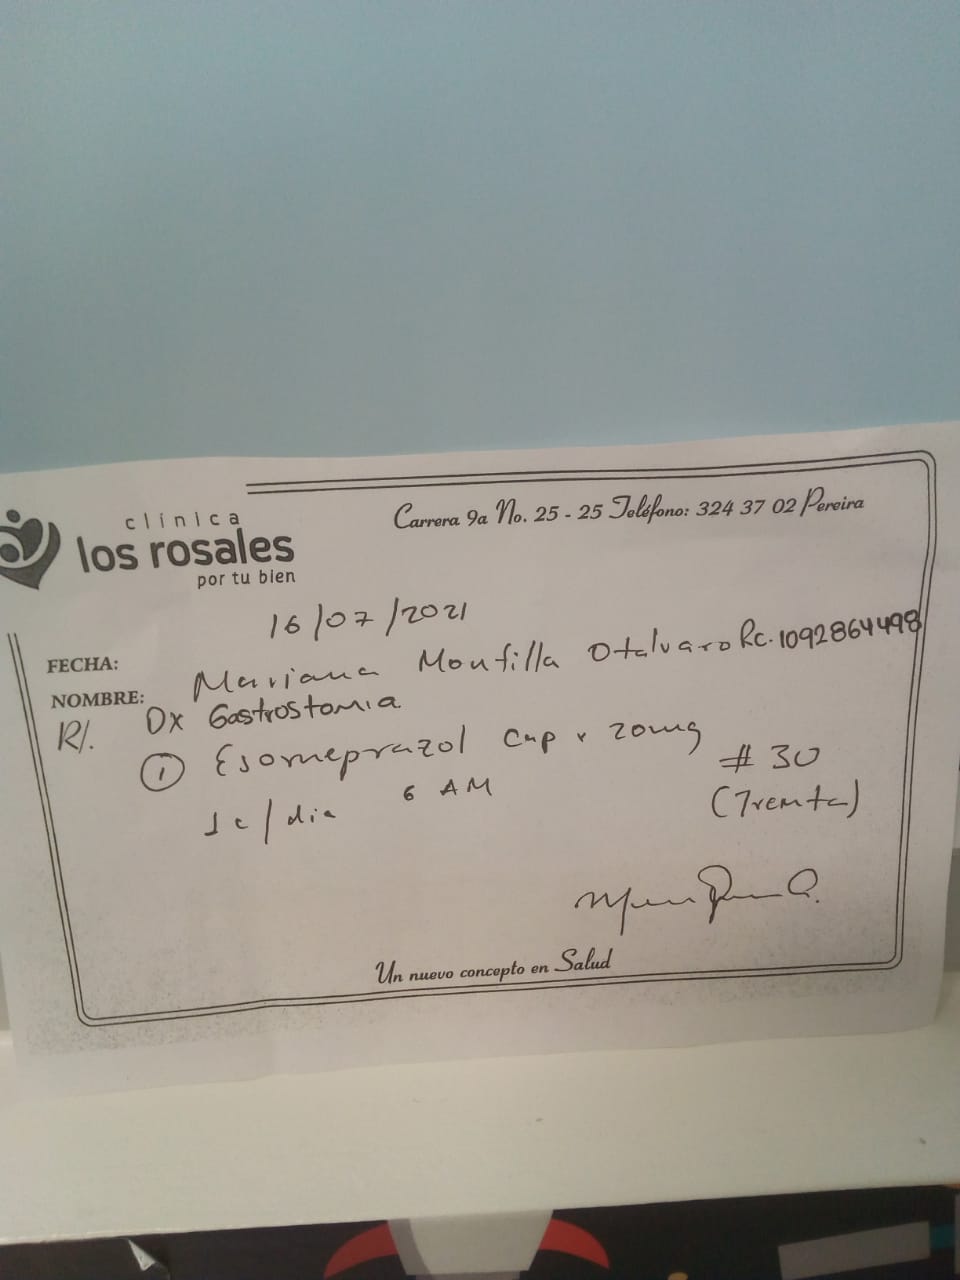 clínica
los rosales
por tu bien
Carrera 9a No. 25 - 25 Teléfono: 324 37 02 Pereira
16/07/2021
FECHA:
NOMBRE: Mariana Montilla Otalvaro Rc. 1092864498
R/. Dx Gastrostomia
① Esomeprazol Cap x 20mg
# 30
1c/dia 6 AM
(Treinta)
Un nuevo concepto en Salud